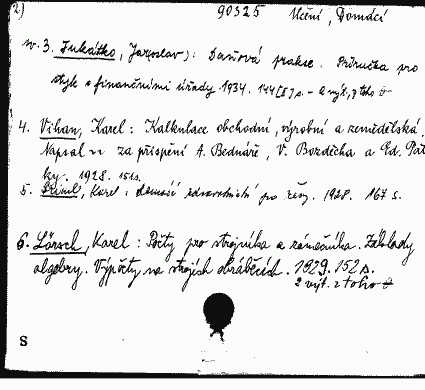 2.) 90325 Učení, Domácí
sv. 3. Lukátko, Jaroslav): Daňová prakse. Příručka pro
styk s finančními úřady 1934. 144 [I] s. - 2 výt. z toho
4. Vihan, Karel: Kalkulace obchodní, výrobní a zemědělská.
Napsal za přispění A. Bednáře, V. Bozděcha a Ed. Pat
ky. 1928. 151 s.
5. Karel: zdravotnictví po 1928. 167 s.
6. Lörsch, Karel: Počty pro strojníka a zámečníka. Základy
algebry. Výpočty na strojích obráběcích. 1929. 152 s.
2 výt. z toho
S